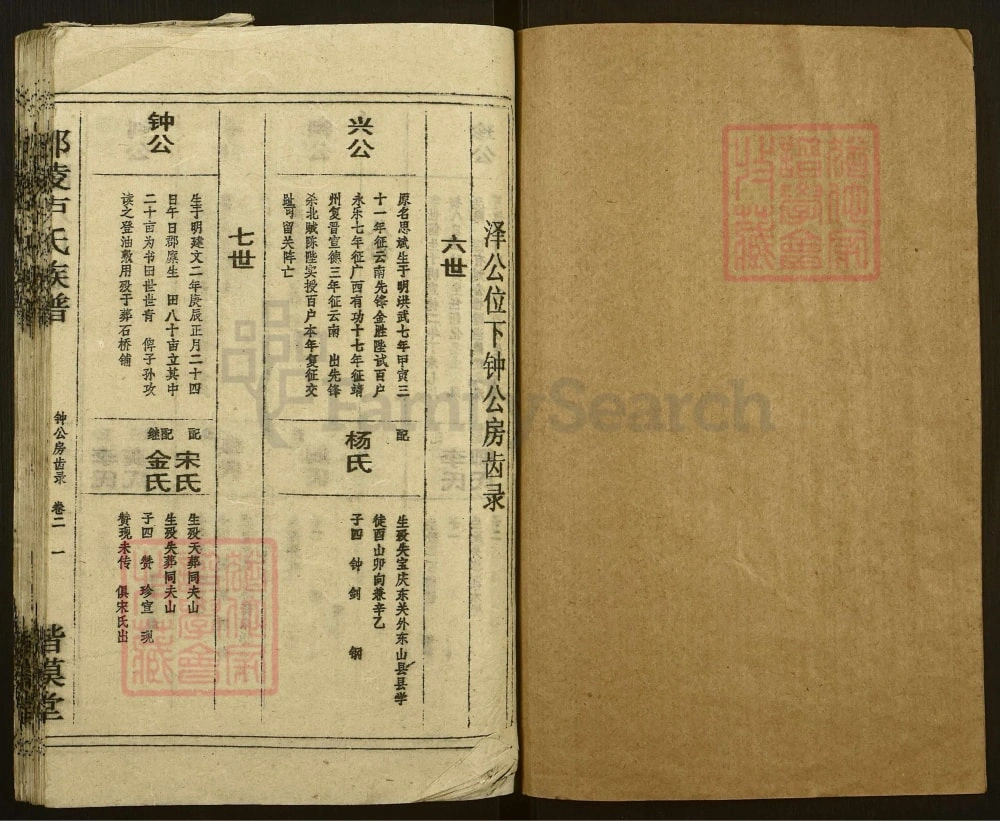 泽公位下钟公房齿录
六世
兴公
原名思斌生于明洪武七年甲寅三
十一年征云南先锋金胜陞试百户
永乐七年征广西有功十七年征靖
州复晋宣德三年征云南 出先锋
杀北贼陈陞实授百户本年复征交
趾可留关阵亡
配
杨氏
生殁失宝庆东关外东山县县学
徒酉山卯向兼辛乙
子四 钟 剑 钢
七世
钟公
生于明建文二年庚辰正月二十四
日午日郡廪生 田八十亩立其中
二十亩为书田世世青 俾子孙攻
读之登油敷用殁于葬石桥铺
配
宋氏
继配
金氏
生殁天葬同夫山
生殁失葬同夫山
子四 赞 珍 宣 现
赞现未传 俱宋氏出
氏族谱
钟公房齿录 卷二 一
堂
FamilySearch